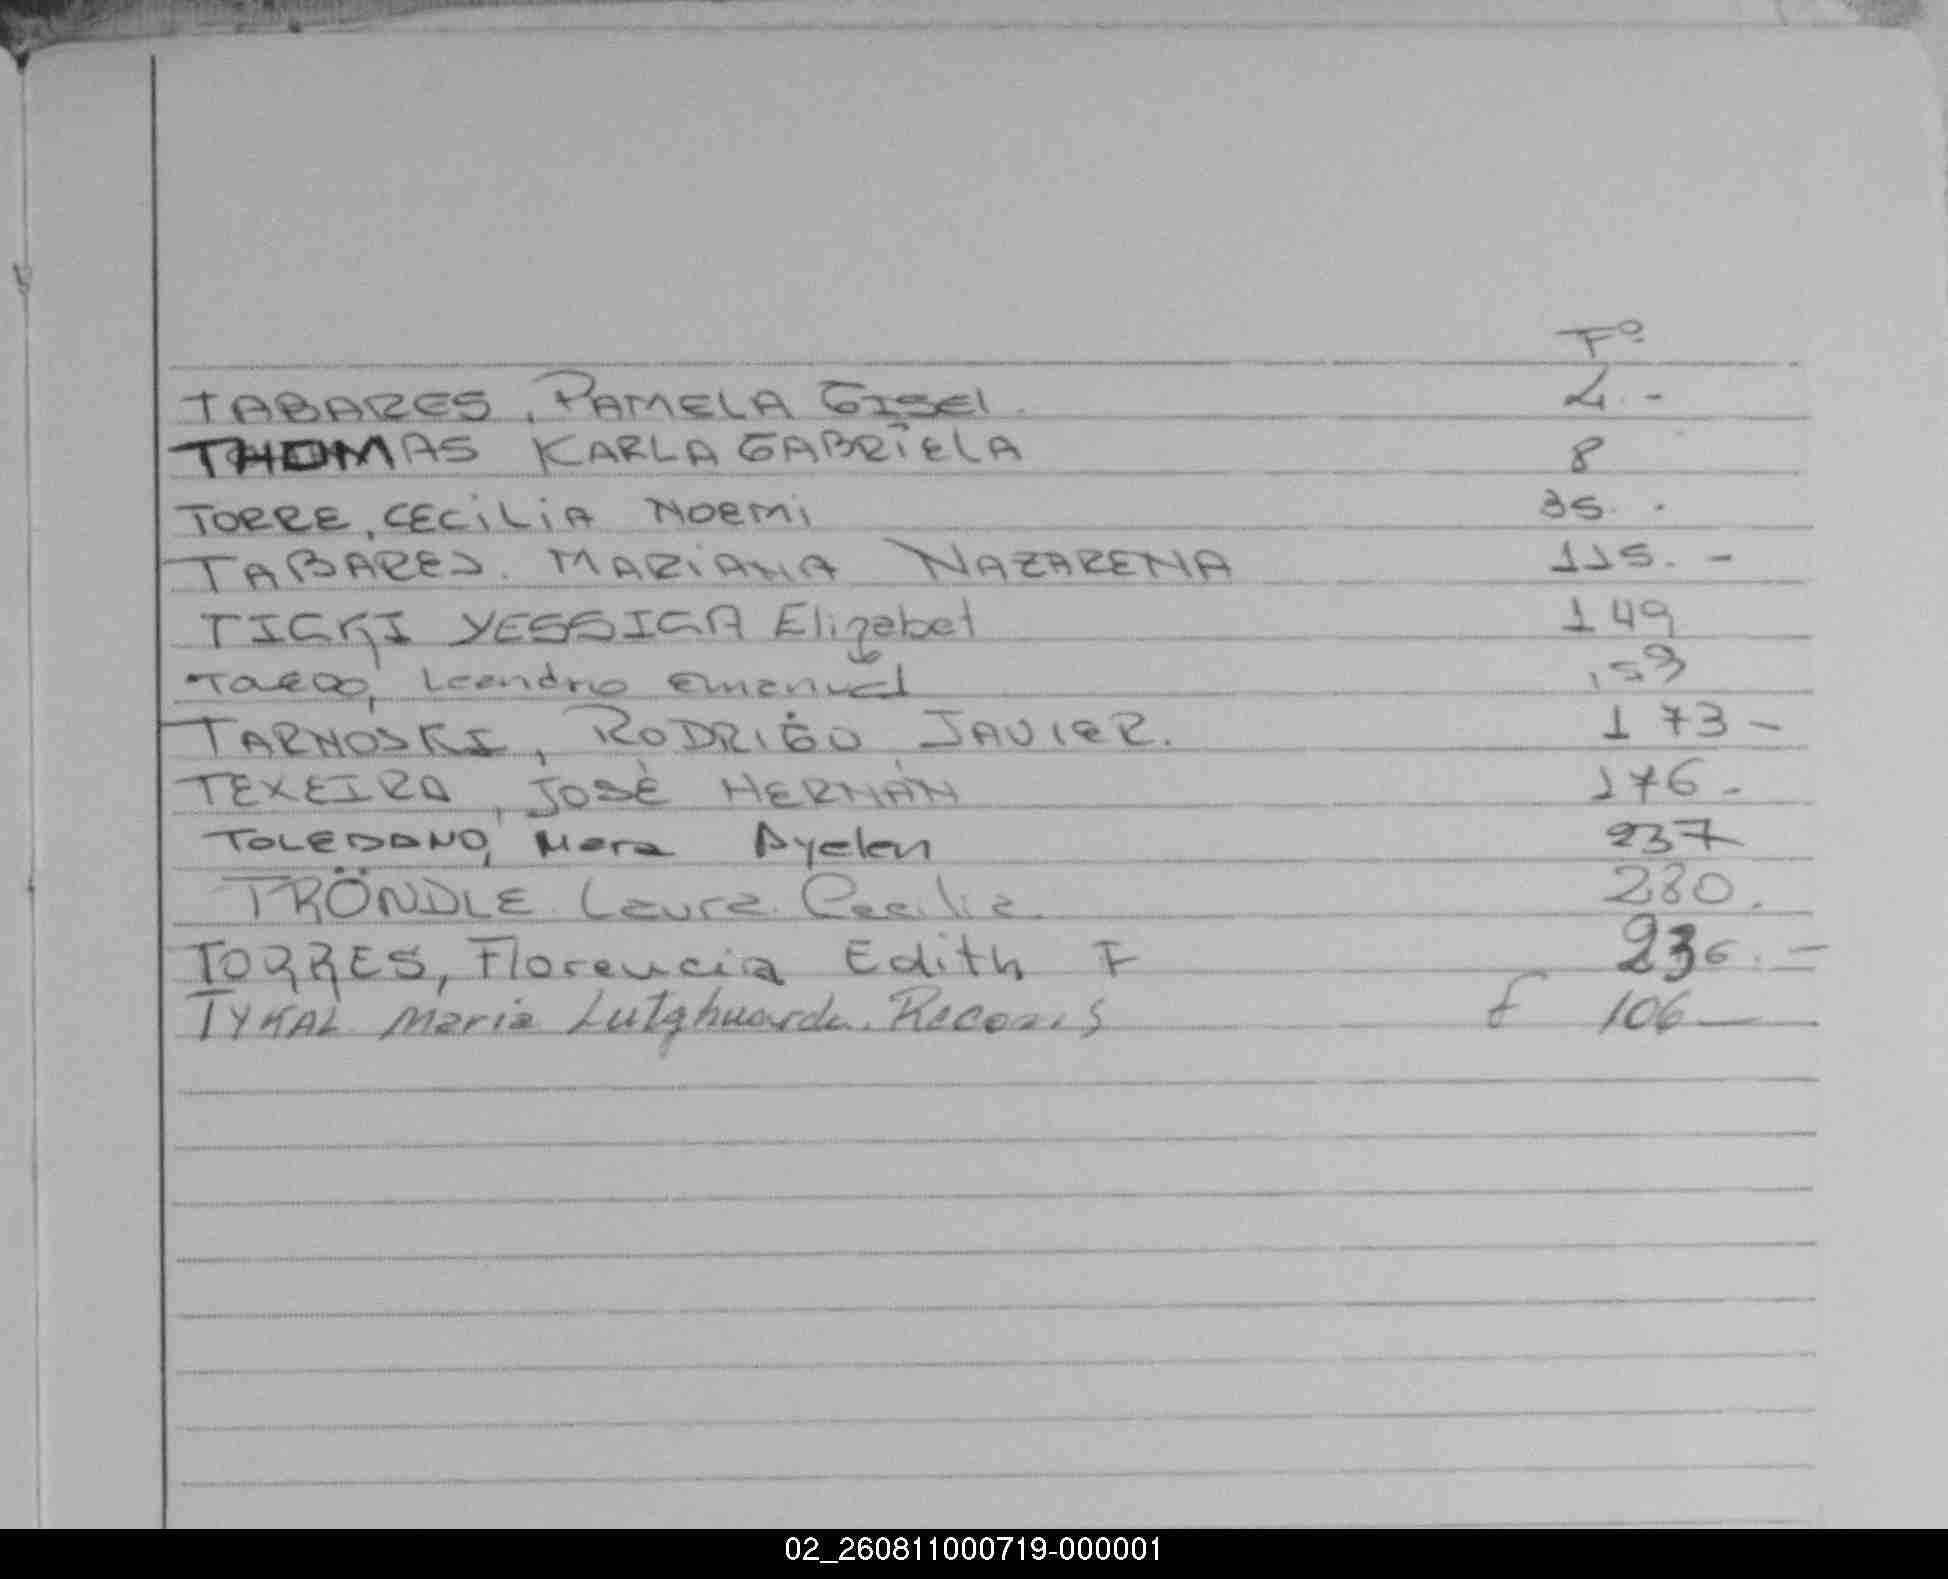 Fº
TABARES, PAMELA GISEL. 2.-
THOMAS KARLA GABRIELA 8
TORRE, CECILIA NOEMI 35.
TABARES. MARIANA NAZARENA 115.-
YESSICA Elizabet 149
Leandro Emanuel 159
TARNOSKI, RODRIGO JAVIER. 173-
TEXEIRA, JOSÉ HERNÁN 176-
TOLEDANO, Mara Ayelen 237
TRÖNDLE Laura Cecilia. 280.
TORRES, Florencia Edith F 236.-
TYKAL Maria f 106-
02_260811000719-000001